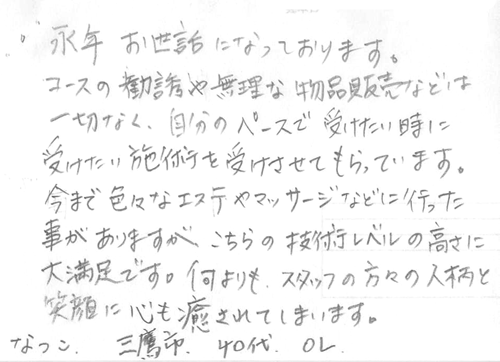 永年 お世話になっております。
コースの勧誘や無理な物品販売などは
一切なく、自分のペースで受けたい時に
受けたい施術を受けさせてもらっています。
今まで色々なエステやマッサージなどに行った
事がありますが、こちらの技術レベルの高さに
大満足です。何よりも、スタッフの方々の人柄と
笑顔に心も癒されてしまいます。
なつこ、 三鷹市、 40代、 OL.